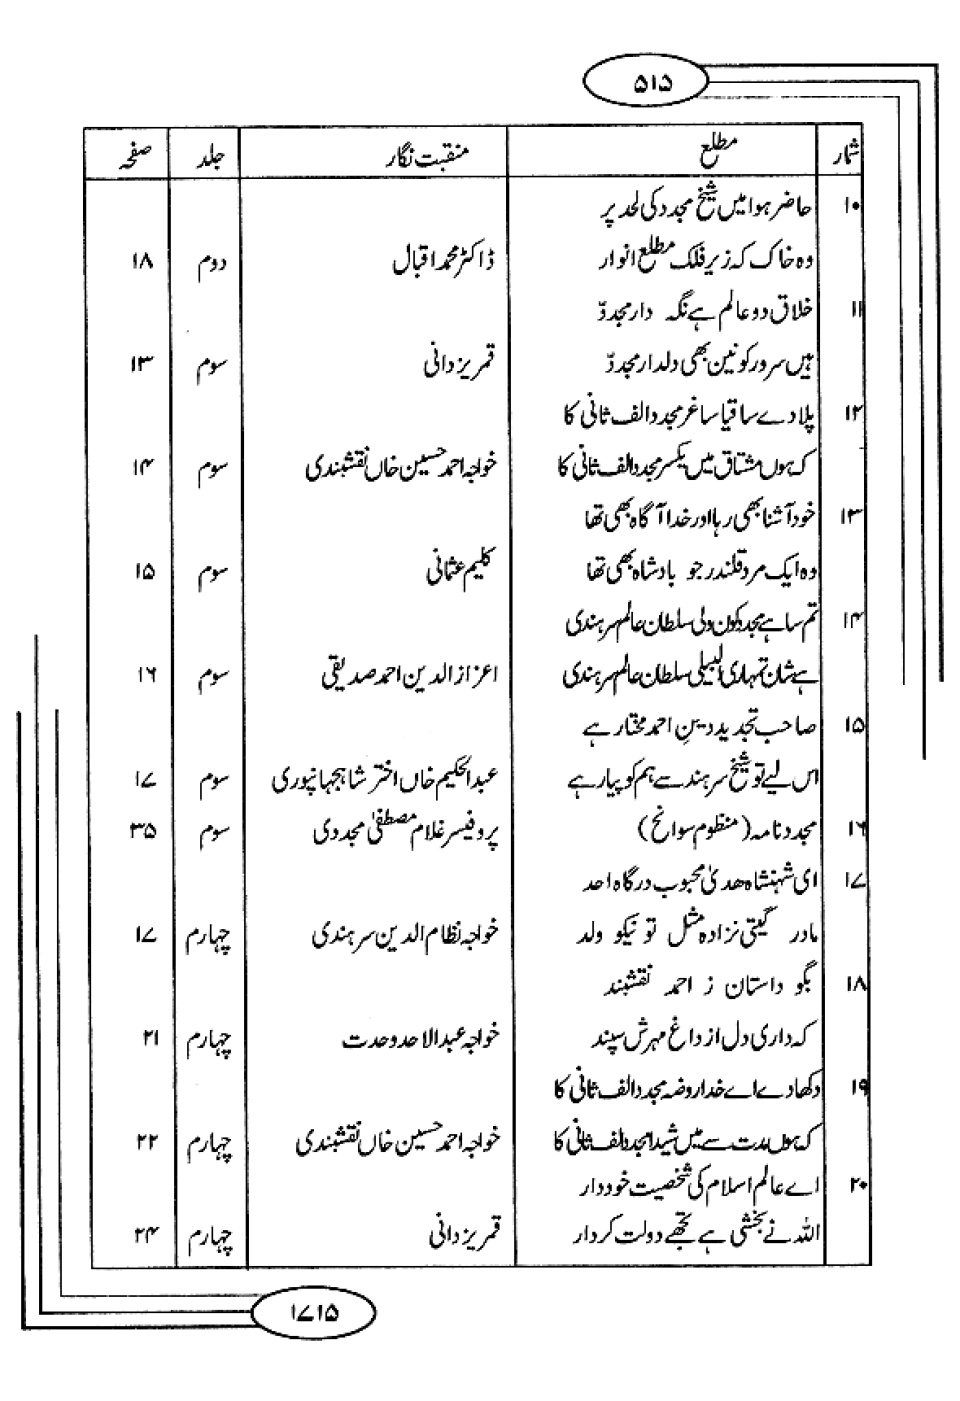 ۵۱۵
شمار مطلع منقبت نگار جلد صفحہ
۱۰ حاضر ہوا میں شیخ مجدد کی لحد پر
وہ خاک کہ زیر فلک مطلع انوار ڈاکٹر محمد اقبال دوم ۱۸
۱۱ خلاق دو عالم ہے نگہ دار مجددّ
ہیں سرور کونین بھی دلدار مجددّ قمر یزدانی سوم ۱۳
۱۲ پلا دے ساقیا ساغر مجدد الف ثانی کا
کہ ہوں مشتاق میں یکسر مجدد الف ثانی کا خواجہ احمد حسین خاں نقشبندی سوم ۱۴
۱۳ خود آشنا بھی رہا اور خدا آگاہ بھی تھا
وہ ایک مرد قلندر جو بادشاہ بھی تھا کلیم عثمانی سوم ۱۵
۱۴ تم سا ہے مجدد کون ولی سلطان عالم سرہندی
ہے شان تمہاری البیلی سلطان عالم سرہندی اعزاز الدین احمد صدیقی سوم ۱۶
۱۵ صاحب تجدید دینِ احمد مختار ہے
اس لیے تو شیخ سرہند سے ہم کو پیار ہے عبدالحکیم خاں اختر شاہجہانپوری سوم ۱۷
۱۶ مجدد نامہ (منظوم سوانح) پروفیسر غلام مصطفیٰ مجددی سوم ۳۵
۱۷ ای شہنشاہ ھدیٰ محبوب درگاہ احد
مادر گیتی نزادہ مثل تو نیکو ولد خواجہ نظام الدین سرہندی چہارم ۱۷
۱۸ بگو داستان ز احمد نقشبند
کہ داری دل از داغ مہرش سپند خواجہ عبدالاحد وحدت چہارم ۲۱
۱۹ دکھا دے اے خدا روضہ مجدد الف ثانی کا
کہ ہوں مدت سے میں شیدا مجدد الف ثانی کا خواجہ احمد حسین خاں نقشبندی چہارم ۲۲
۲۰ اے عالم اسلام کی شخصیت خوددار
اللہ نے بخشی ہے تجھے دولت کردار قمر یزدانی چہارم ۲۴
۱۷۱۵